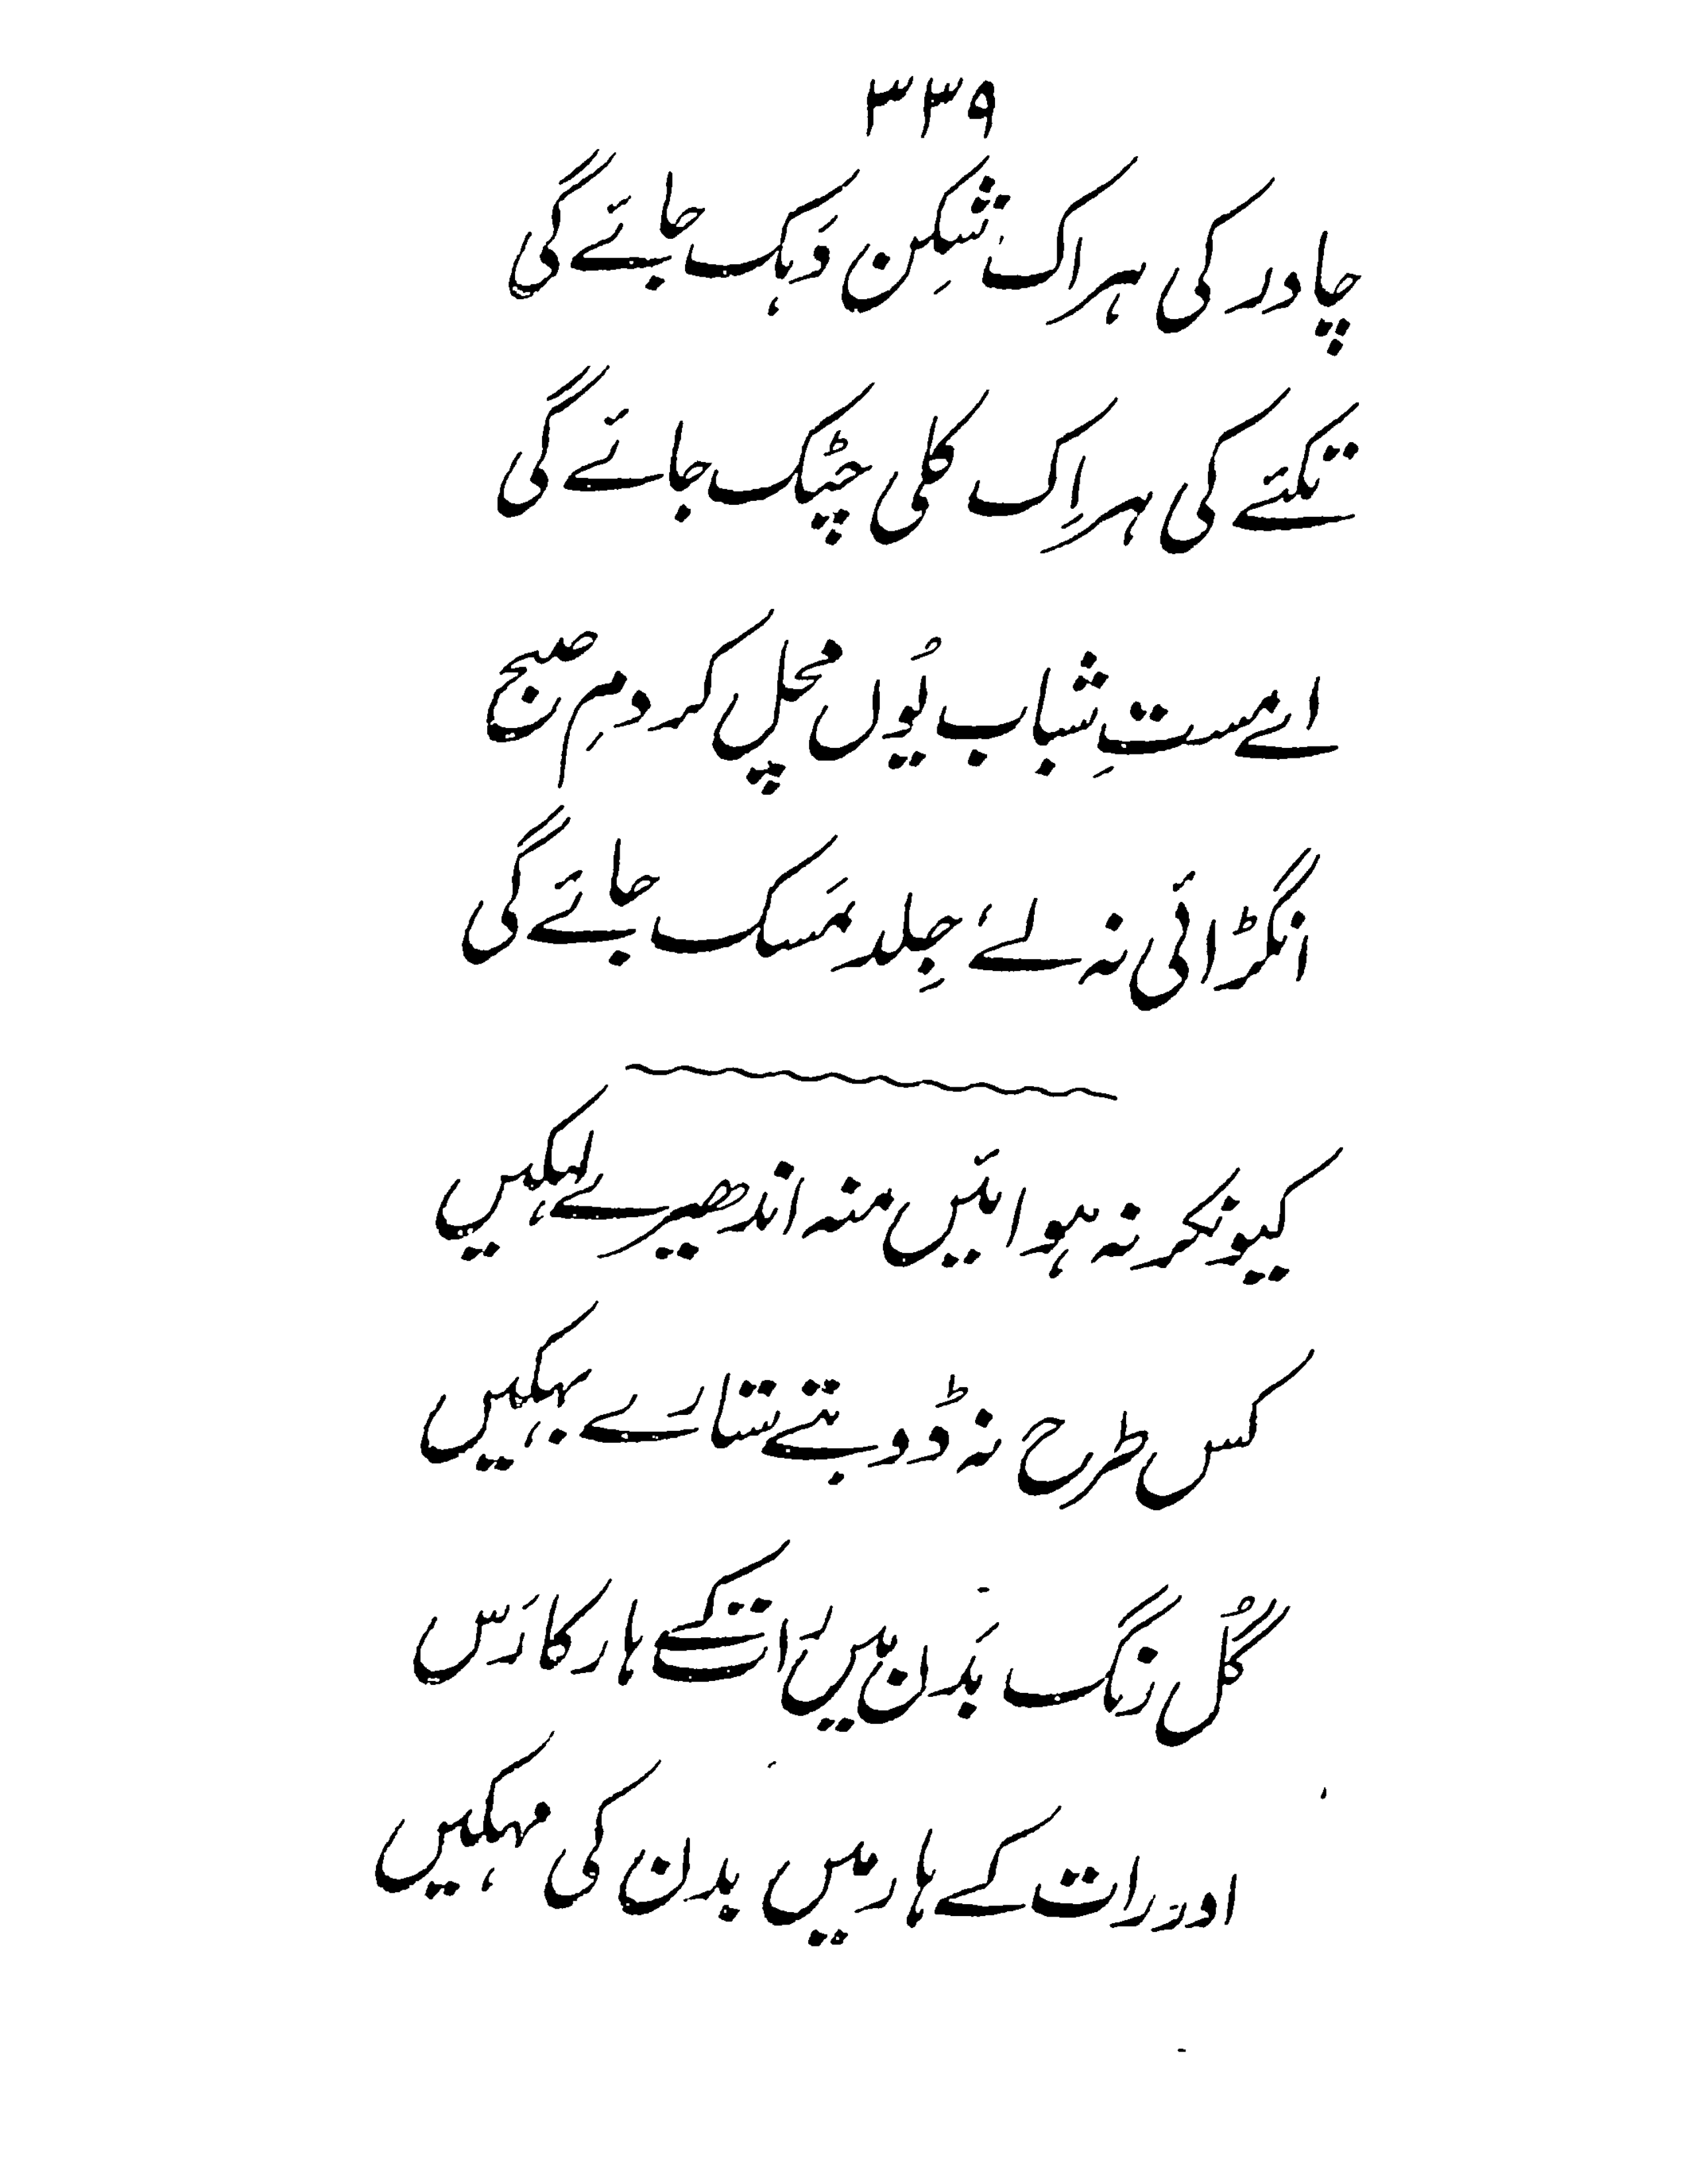 ۳۳۹
چادر کی ہر اک شِکن دَہک جائے گی
تکئے کی ہر اِک کلی چٹک جائے گی
اے مستِ شباب یُوں مچل کر دمِ صبح
انگڑائی نہ لے، جِلد مَسک جائے گی
کیونکر نہ ہوائیں منہ اندھیرے لہکیں
کس طرح نہ ڈوبتے ستارے بہکیں
گُل رنگ بَدن میں رَات کے ہار کا رَس
اور رات کے ہار میں بدن کی مہکیں